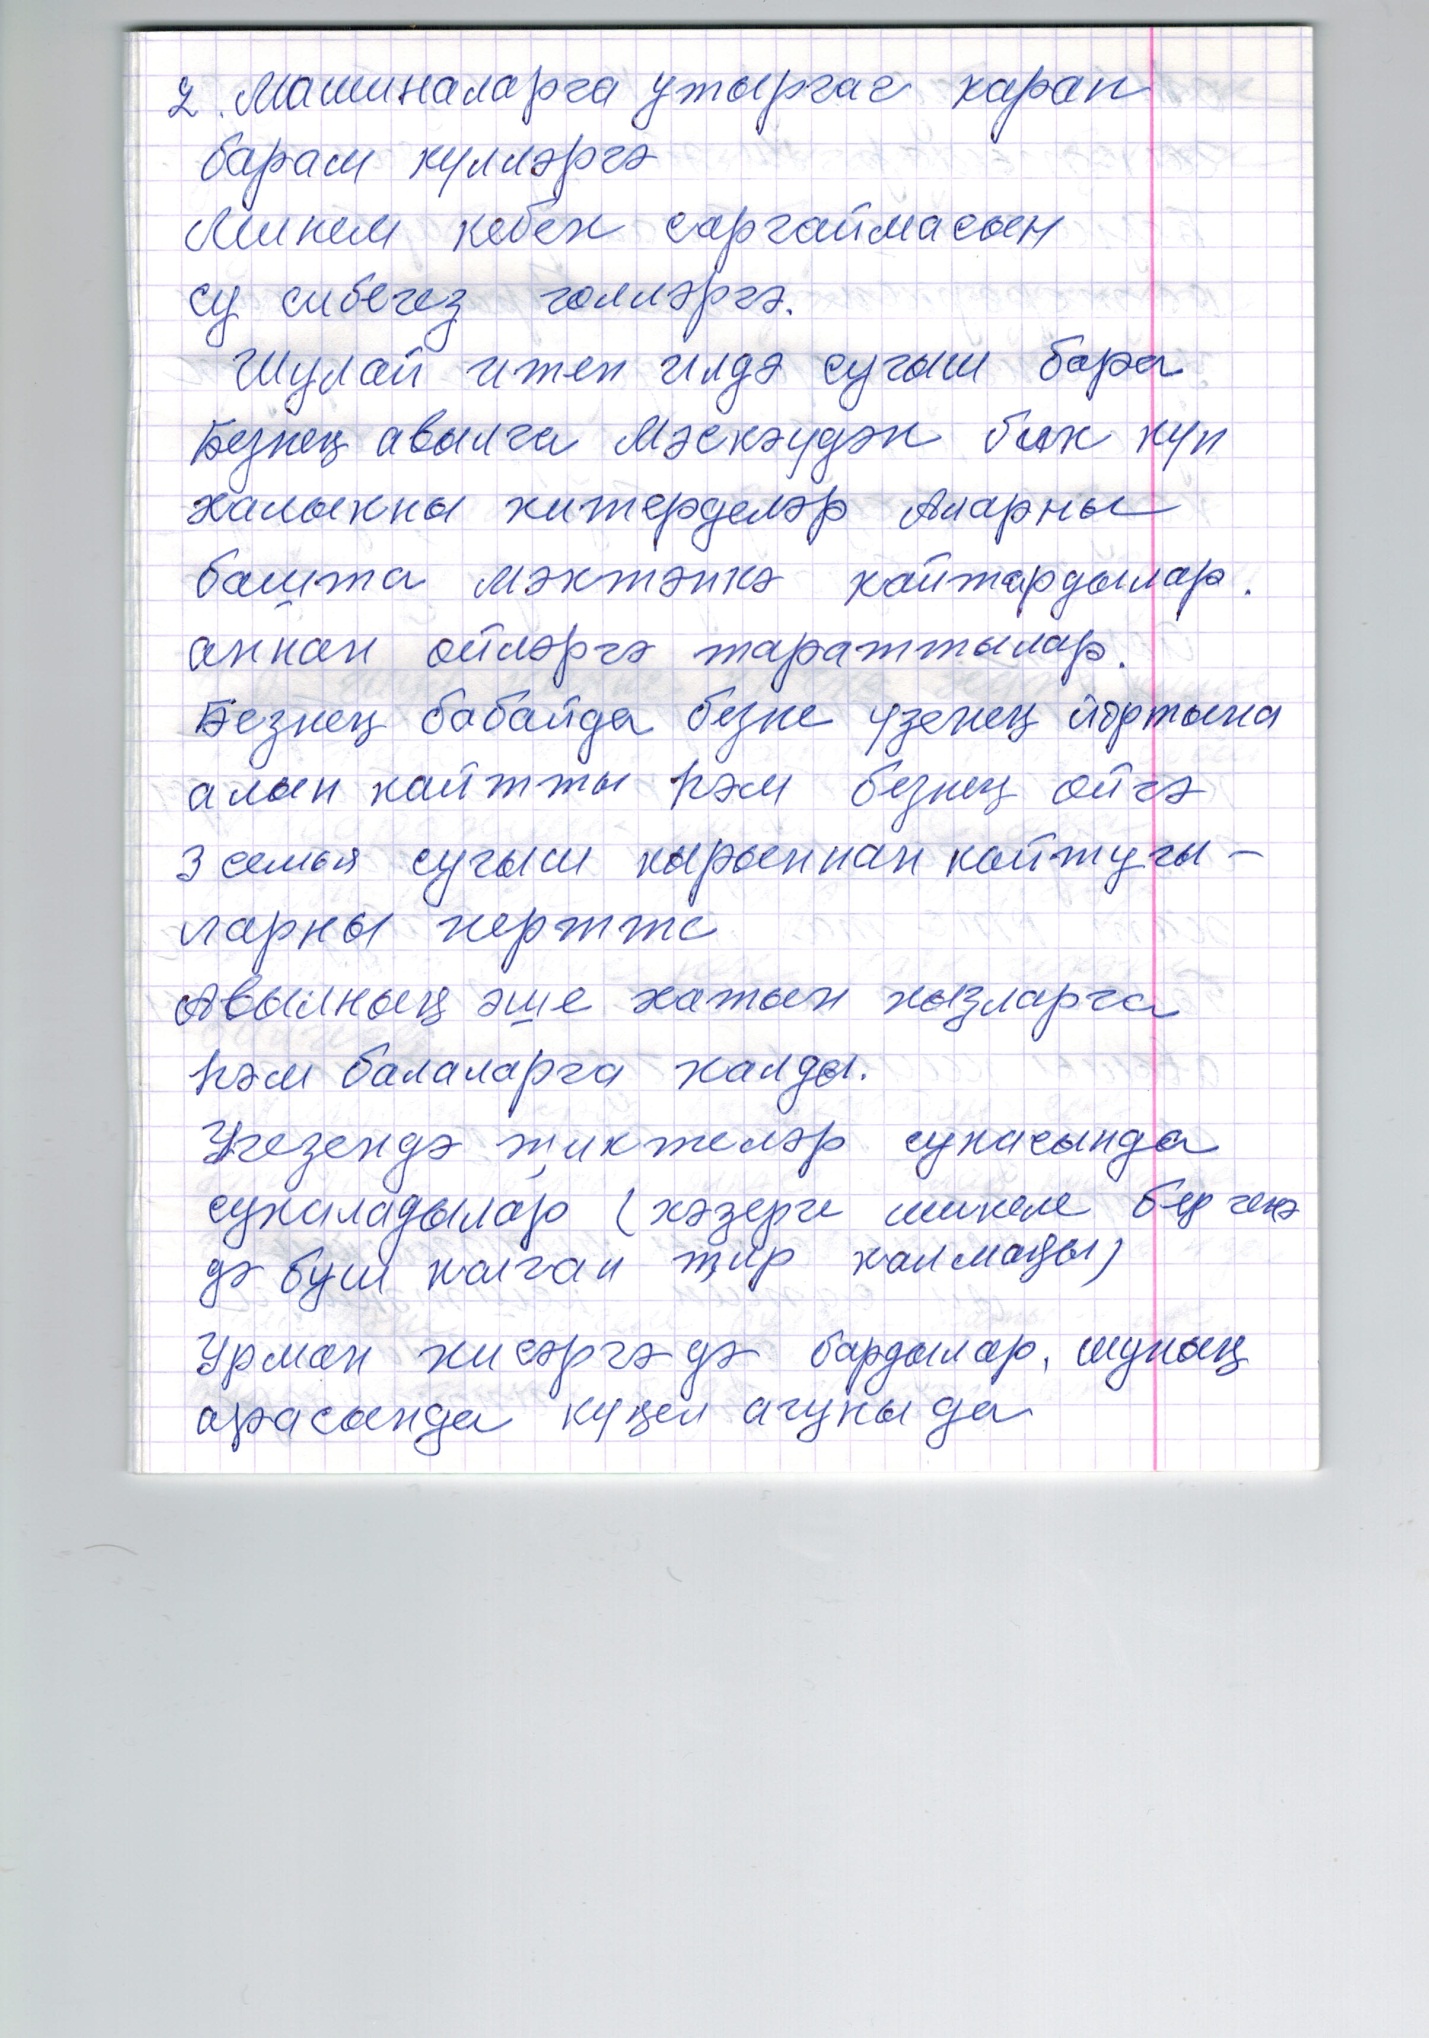 2. Машиналарга утыргач карап
барам күлләргә
Минем кебек саргаймасын
су сибегез гөлләргә.
Шулай итеп илдә сугыш бара
Безнең авылга Мәскәүдән бик күп
халыкны китерделәр Аларны
башта мәктәпкә кайтардылар.
аннан өйләргә тараттылар.
Безнең бабайда безне үзенең йортына
алып кайтты һәм безнең өйгә
3 семья сугыш кырыннан кайтучы-
ларны кертте
Авылның эше хатын кызларга
һәм балаларга калды.
Үгезендә җиктеләр сукасында
сукаладылар (хәзерге шикеле бер генә
дә буш калган җир калмады)
Урман кисәргә дә бардылар, шуның
арасында күңел ачуны да